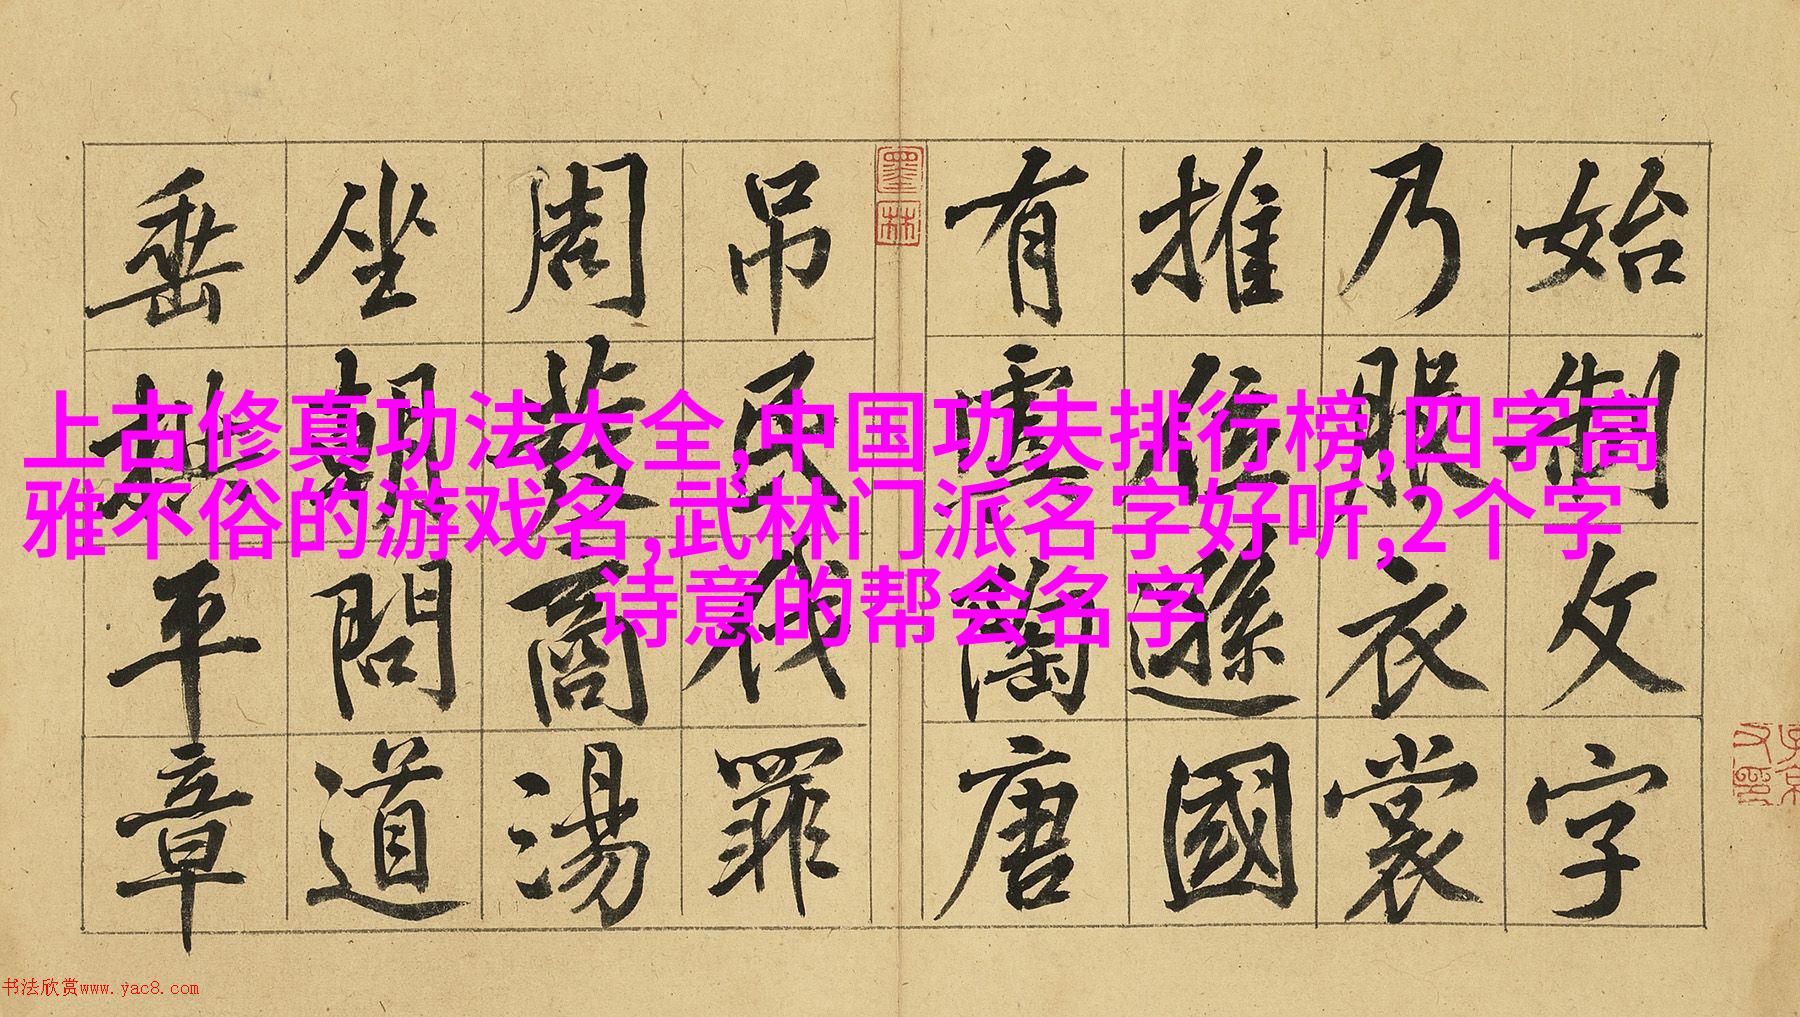 始制文字
乃服衣裳
推位遜國
有虞陶唐
墨林
吊民伐罪
周發商湯
坐朝問道
垂拱平章
上古修真功法大全,中国功夫排行榜,四字高
雅不俗的游戏名,武林门派名字好听,2个字
诗意的帮会名字
书法欣赏www.yac8.com